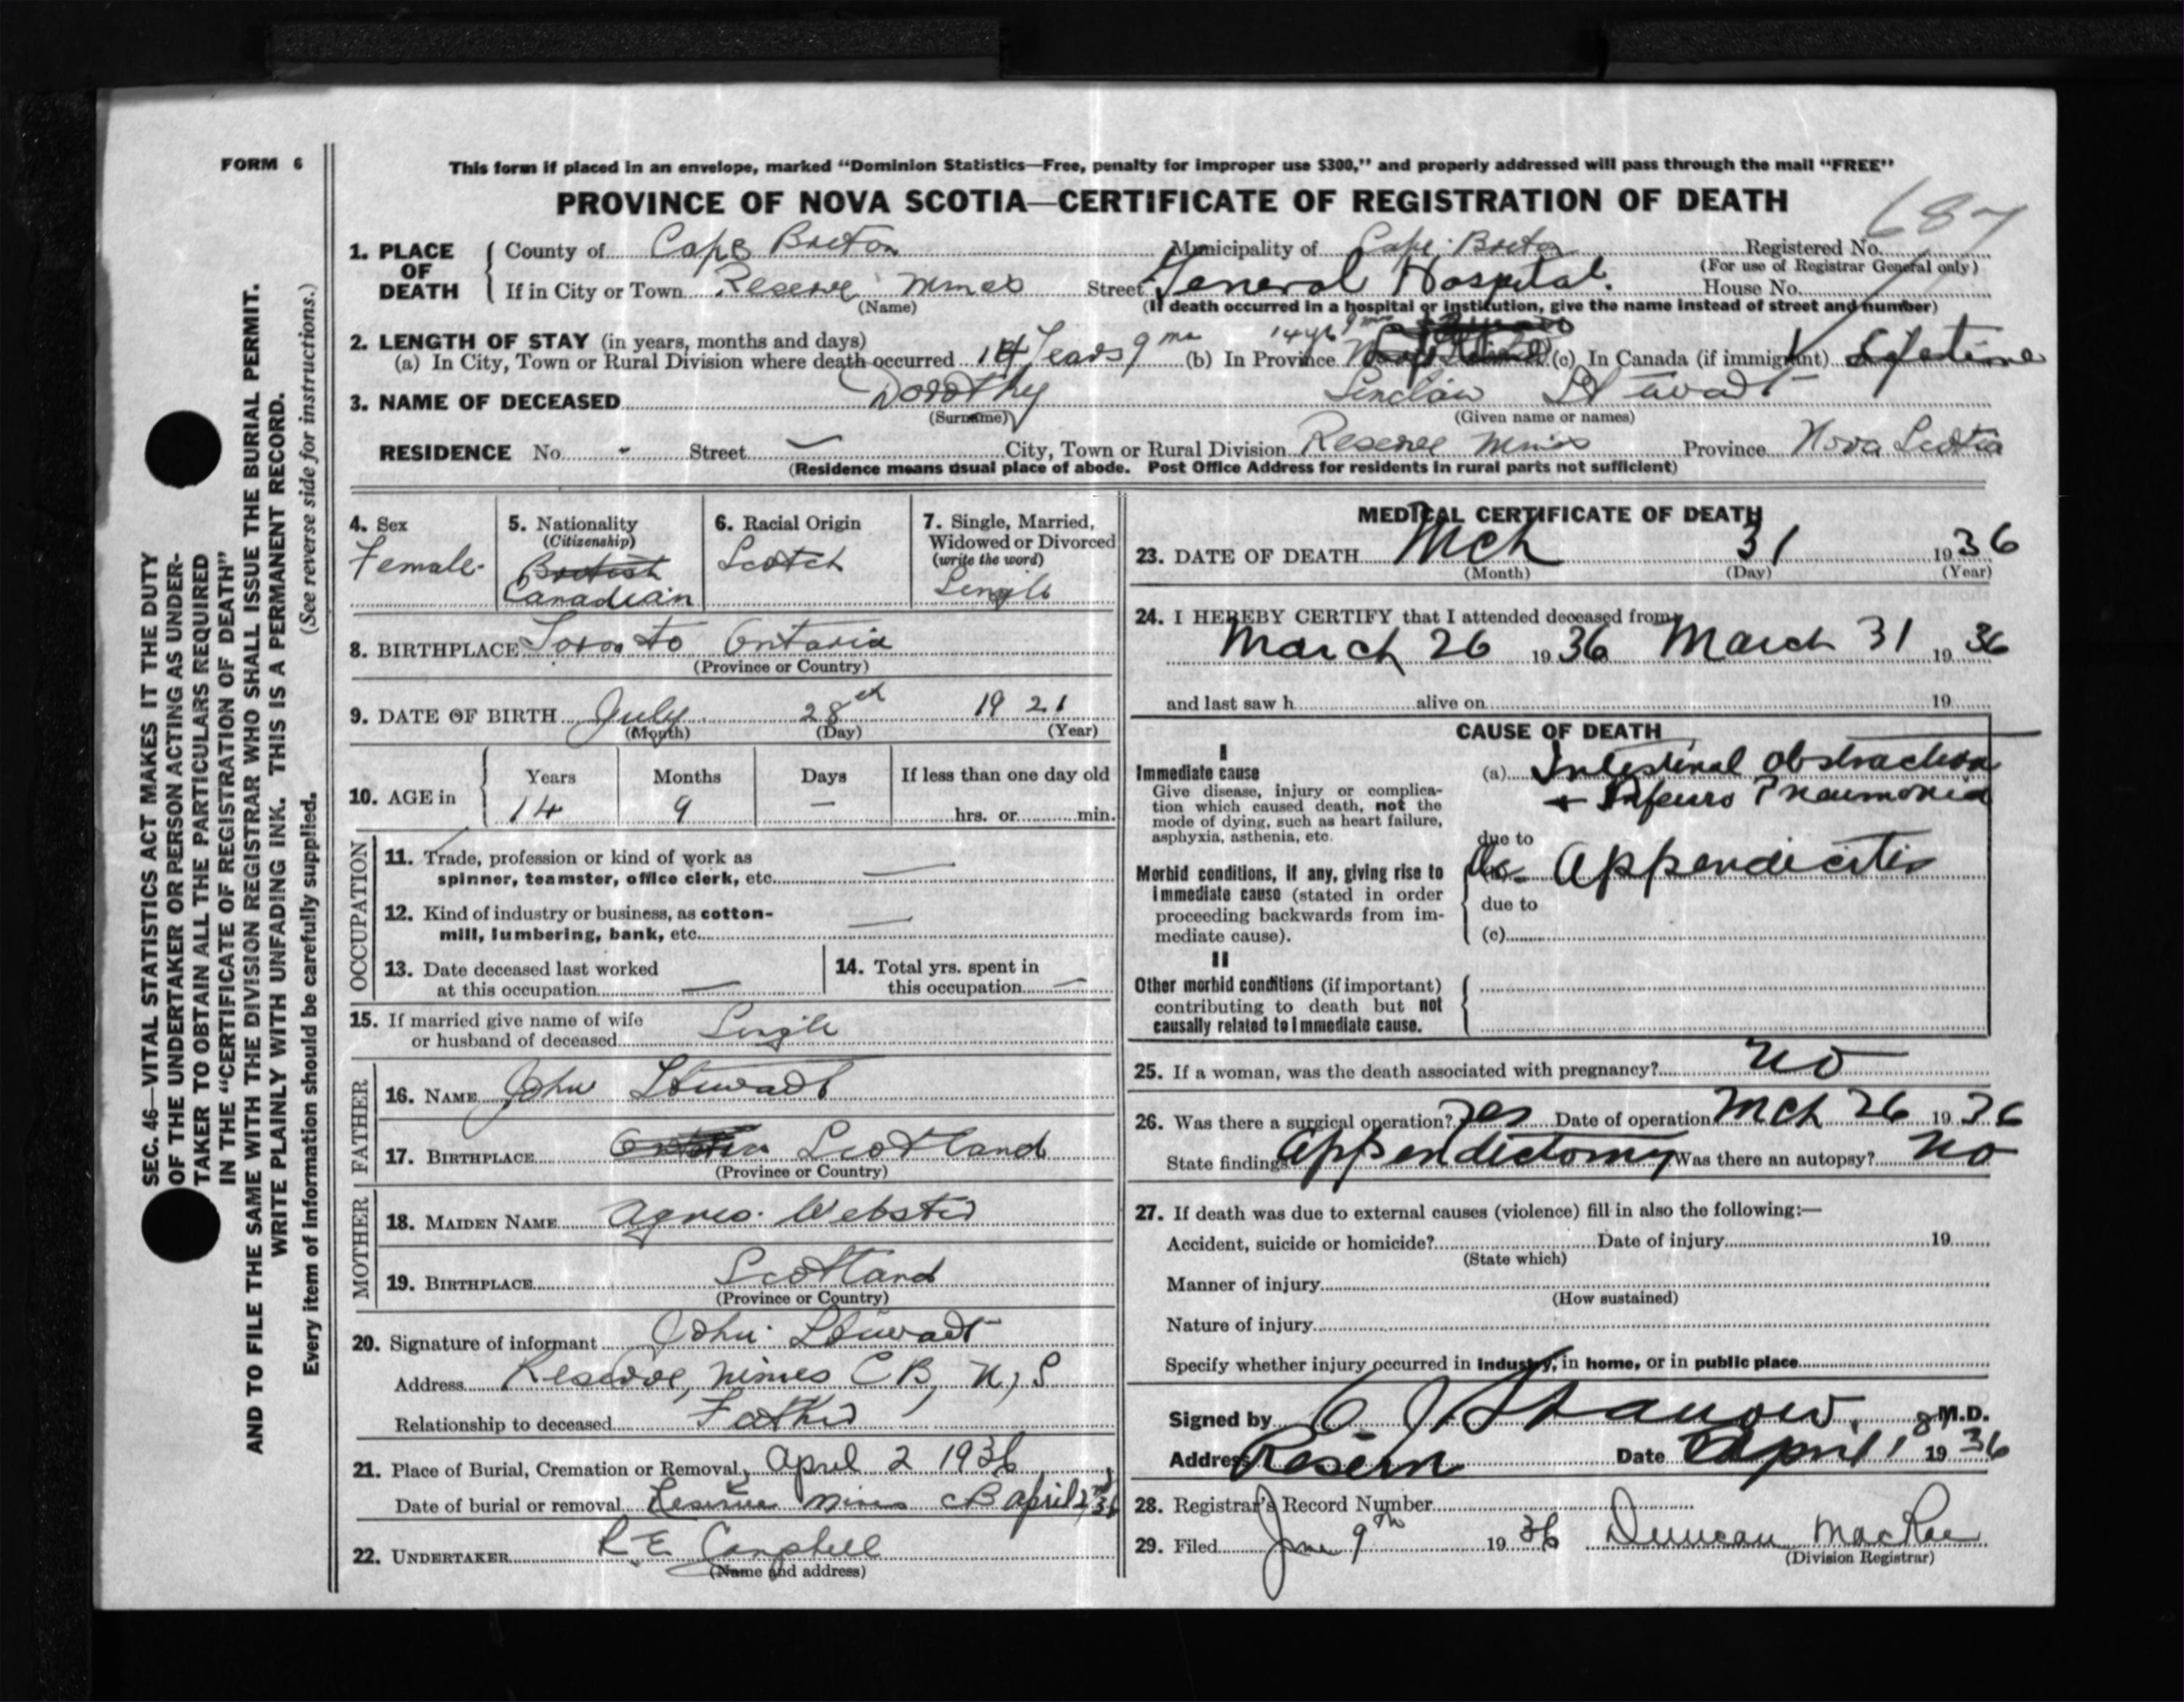 FORM 6
This form if placed in an envelope, marked "Dominion Statistics—Free, penalty for improper use $300," and properly addressed will pass through the mail "FREE"
PROVINCE OF NOVA SCOTIA—CERTIFICATE OF REGISTRATION OF DEATH
687
1. PLACE OF DEATH
County of Cape Breton Municipality of Cape Breton Registered No.
(For use of Registrar General only)
If in City or Town Reserve Mines Street General Hospital. House No.
(Name) (If death occurred in a hospital or institution, give the name instead of street and number)
2. LENGTH OF STAY (in years, months and days)
(a) In City, Town or Rural Division where death occurred 14 Years 9 mo (b) In Province 14 yrs 9 mos (c) In Canada (if immigrant) Lifetime
3. NAME OF DECEASED Dorothy Sinclair Stewart
(Surname) (Given name or names)
RESIDENCE No. - Street — City, Town or Rural Division Reserve Mines Province Nova Scotia
(Residence means usual place of abode. Post Office Address for residents in rural parts not sufficient)
4. Sex
Female
5. Nationality
(Citizenship)
British
Canadian
6. Racial Origin
Scotch
7. Single, Married, Widowed or Divorced
(write the word)
Single
8. BIRTHPLACE Toronto Ontario
(Province or Country)
9. DATE OF BIRTH July 28th 1921
(Month) (Day) (Year)
10. AGE in
Years Months Days If less than one day old
14 9 — hrs. or min.
OCCUPATION
11. Trade, profession or kind of work as
spinner, teamster, office clerk, etc. —
12. Kind of industry or business, as cotton-
mill, lumbering, bank, etc. —
13. Date deceased last worked
at this occupation —
14. Total yrs. spent in
this occupation —
15. If married give name of wife
or husband of deceased Single
FATHER
16. NAME John Stewart
17. BIRTHPLACE Scotland
(Province or Country)
MOTHER
18. MAIDEN NAME Agnes Webster
19. BIRTHPLACE Scotland
(Province or Country)
20. Signature of informant John Stewart
Address Reserve, Mines CB, N, S
Relationship to deceased Father
21. Place of Burial, Cremation or Removal April 2 1936
Date of burial or removal Reserve Mines CB April 2nd/36
22. UNDERTAKER R E Campbell
(Name and address)
MEDICAL CERTIFICATE OF DEATH
23. DATE OF DEATH Mch 31 1936
(Month) (Day) (Year)
24. I HEREBY CERTIFY that I attended deceased from
March 26 1936 March 31 1936
and last saw h alive on 19
CAUSE OF DEATH
I
Immediate cause
Give disease, injury or complica-
tion which caused death, not the
mode of dying, such as heart failure,
asphyxia, asthenia, etc.
(a) Intestinal obstruction
+ Pneumonia
due to
Morbid conditions, if any, giving rise to
immediate cause (stated in order
proceeding backwards from im-
mediate cause).
Appendicitis
due to
(c)
II
Other morbid conditions (if important)
contributing to death but not
causally related to immediate cause.
25. If a woman, was the death associated with pregnancy? no
26. Was there a surgical operation? yes Date of operation Mch 26 1936
State findings appendictomy Was there an autopsy? no
27. If death was due to external causes (violence) fill in also the following:—
Accident, suicide or homicide? Date of injury 19
(State which)
Manner of injury
(How sustained)
Nature of injury
Specify whether injury occurred in industry, in home, or in public place
Signed by M.D.
Address Reserve Date April 1 1936
28. Registrar's Record Number
29. Filed June 9th 1936 Duncan MacRae
(Division Registrar)
SEC. 46—VITAL STATISTICS ACT MAKES IT THE DUTY
OF THE UNDERTAKER OR PERSON ACTING AS UNDER-
TAKER TO OBTAIN ALL THE PARTICULARS REQUIRED
IN THE "CERTIFICATE OF REGISTRATION OF DEATH"
AND TO FILE THE SAME WITH THE DIVISION REGISTRAR WHO SHALL ISSUE THE BURIAL PERMIT.
WRITE PLAINLY WITH UNFADING INK. THIS IS A PERMANENT RECORD.
Every item of information should be carefully supplied. (See reverse side for instructions.)